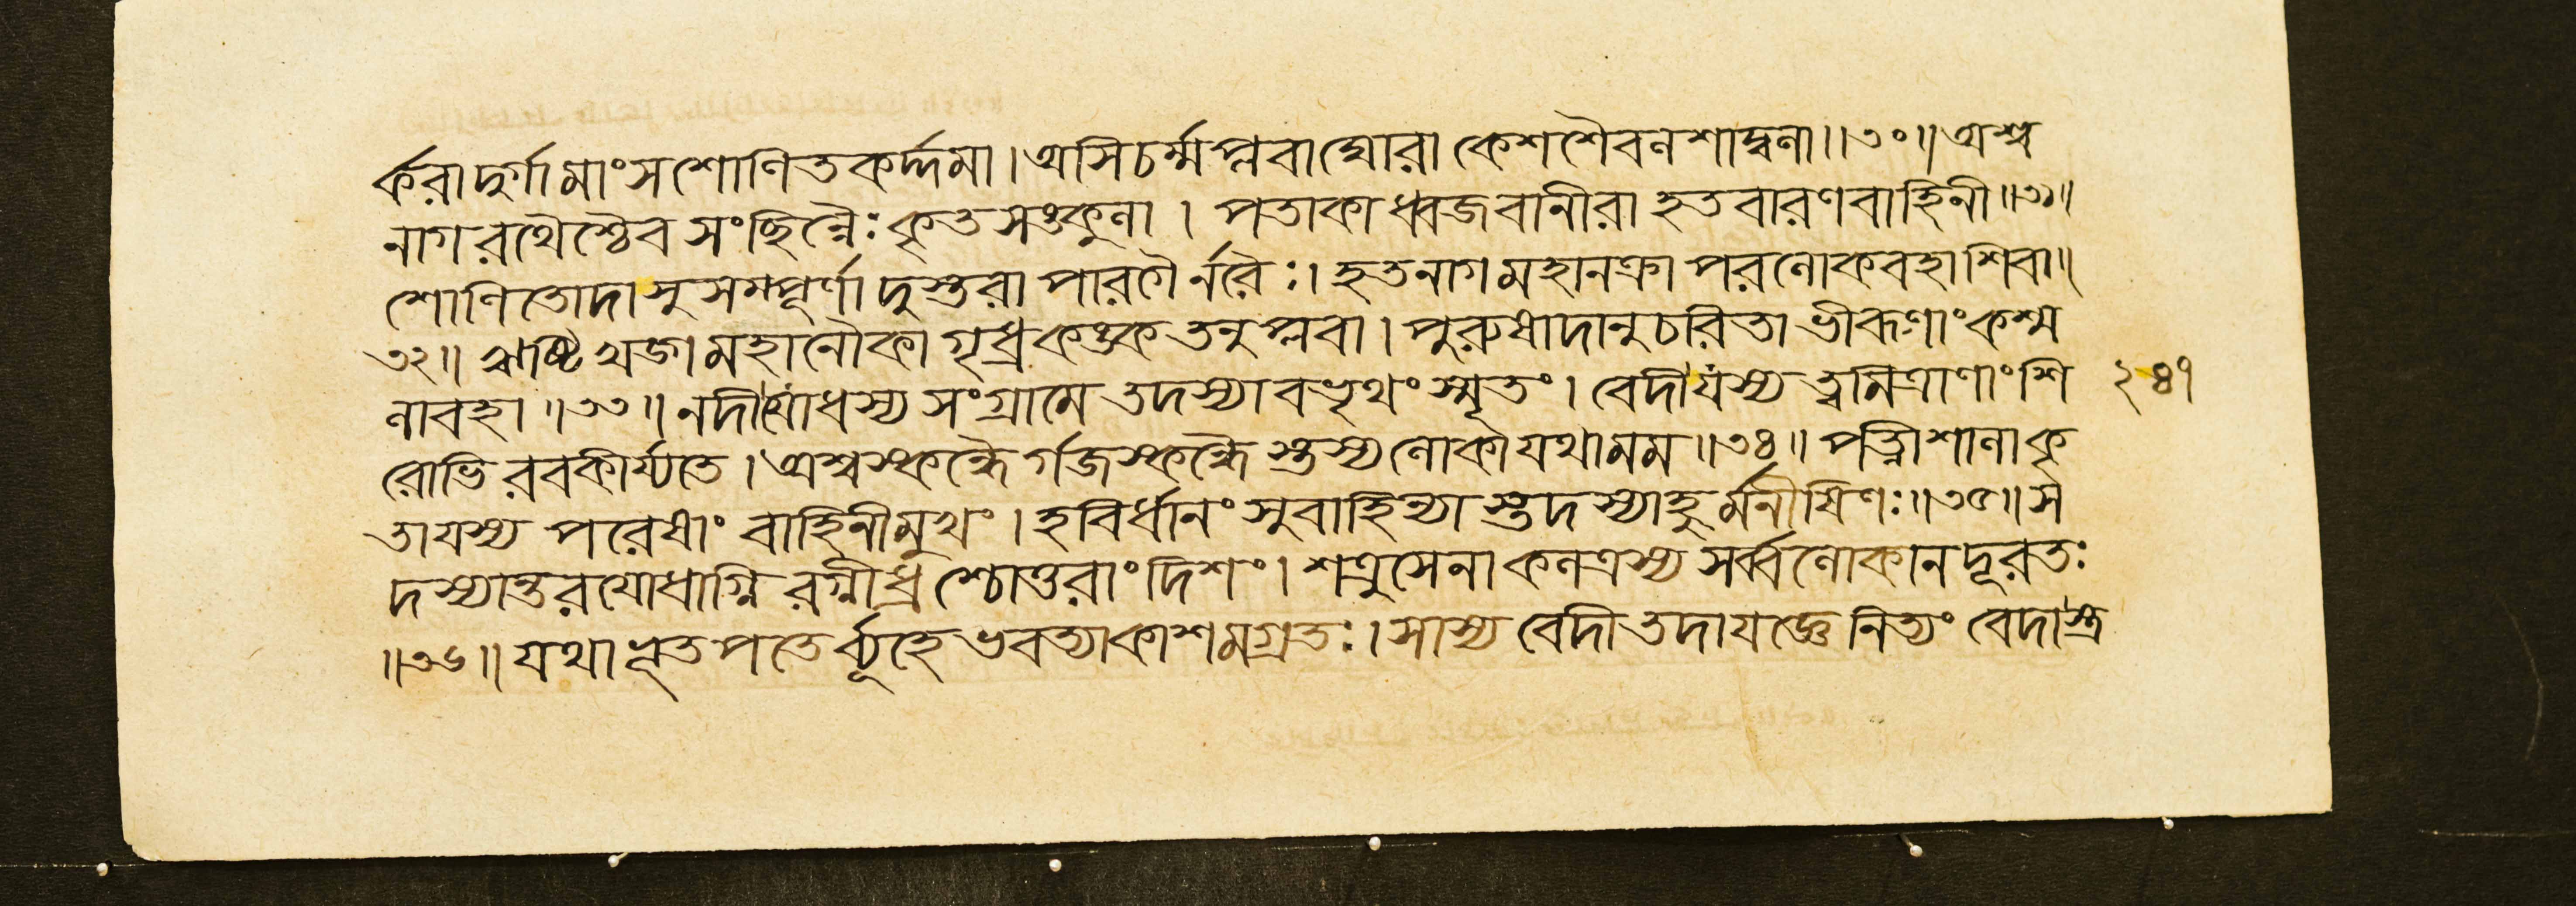 র্করা দুর্গা মাংসশোণিতকর্দ্দমা । অসিচর্ম্মপ্লবা ঘোরা কেশশৈবলশাদ্বলা ॥৩০॥ অশ্ব
নাগরথৈশ্চৈব সংছিন্নৈঃ কৃতসঙ্কুলা । পতাকাধ্বজবানীরা হতবারণবাহিনী ॥৩১॥
শোণিতোদা সুসম্পূর্ণা দুস্তরা পারগৈর্নরৈঃ । হতনাগমহানক্রা পরলোকবহাশিবা ॥
৩২॥ ঋষ্টিখড্গমহানৌকা গৃধ্রকঙ্কতনুপ্লবা । পুরুষাদানুচরিতা ভীরূণাং কশ্ম
লাবহা ॥৩৩॥ নদী যোধস্য সংগ্রামে তদস্যাবভৃথং স্মৃতং । বেদী যস্য ত্বমিত্রাণাং শি ২৪৭
রোভিরবকীর্য্যতে । অশ্বস্কন্ধৈর্গজস্কন্ধৈস্তস্য লোকা যথা মম ॥৩৪॥ পত্নীশালা কৃ
তা যস্য পরেষাং বাহিনীমুখং । হবির্ধানং সুবাহিন্যাস্তদস্যাহুর্মনীষিণঃ ॥৩৫॥ স
দস্যান্তরযোধাগ্নিরগ্নীধ্রশ্চোত্তরাং দিশং । শত্রুসেনাকলত্রস্য সর্ব্বলোকানদূরতঃ
॥৩৬॥ যথা ধূতপতের্ব্যূহে ভবত্যাকাশমগ্রতঃ । সাস্য বেদী তদা যজ্ঞে নিত্যং বেদাস্ত্র